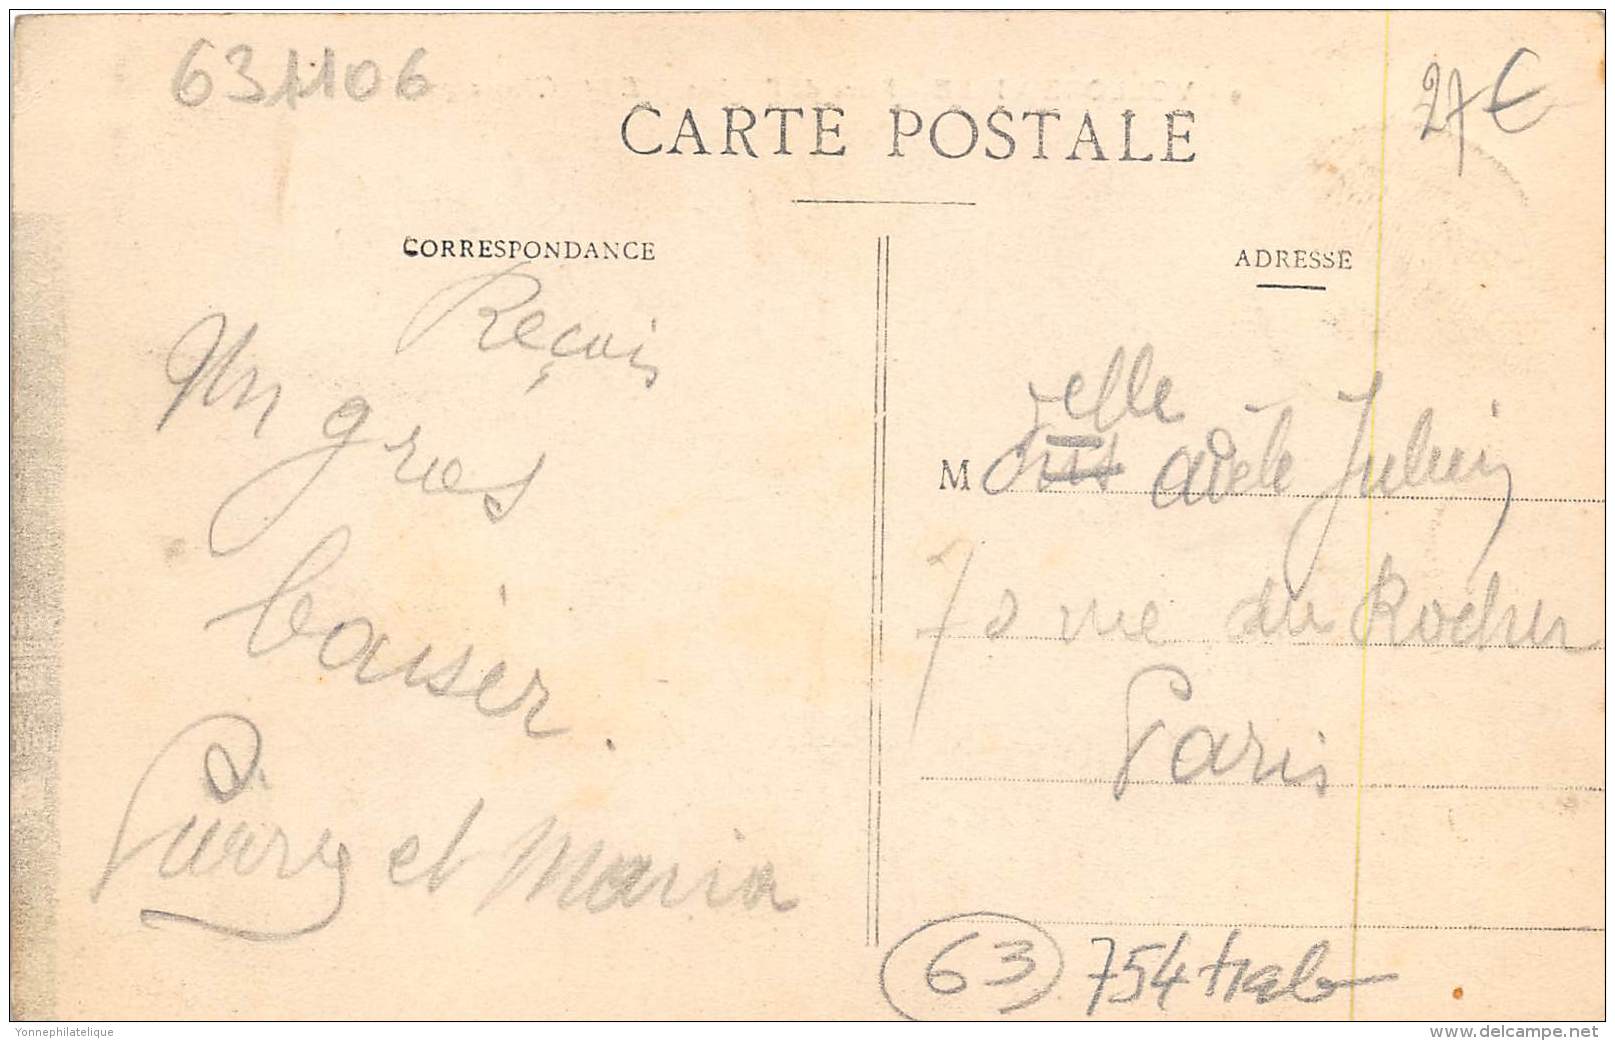 631106
27€
CARTE POSTALE
CORRESPONDANCE
ADRESSE
Reçois
Un gros
baiser.
Pierre et Maria
M elle adèle Julien
70 rue du Rocher
Paris
63 754
Yonnephilatelique
www.delcampe.net